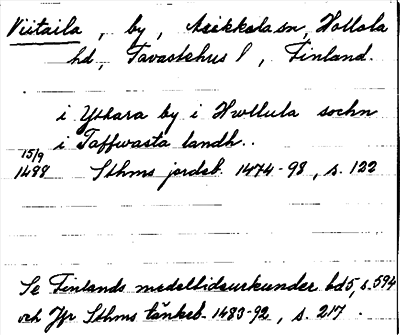 Viitaila, by, Asikkala sn, Hollola
hd, Tavastehus l, Finland.
i Ytkara by i Hwllula sochn
i Taffwasta landh..
15/9
1488 Sthms jordeb. 1474-98, s. 122
Se Finlands medeltidsurkunder bd 5, s. 594
och Jfr Sthms tänkeb. 1483-92, s. 217.